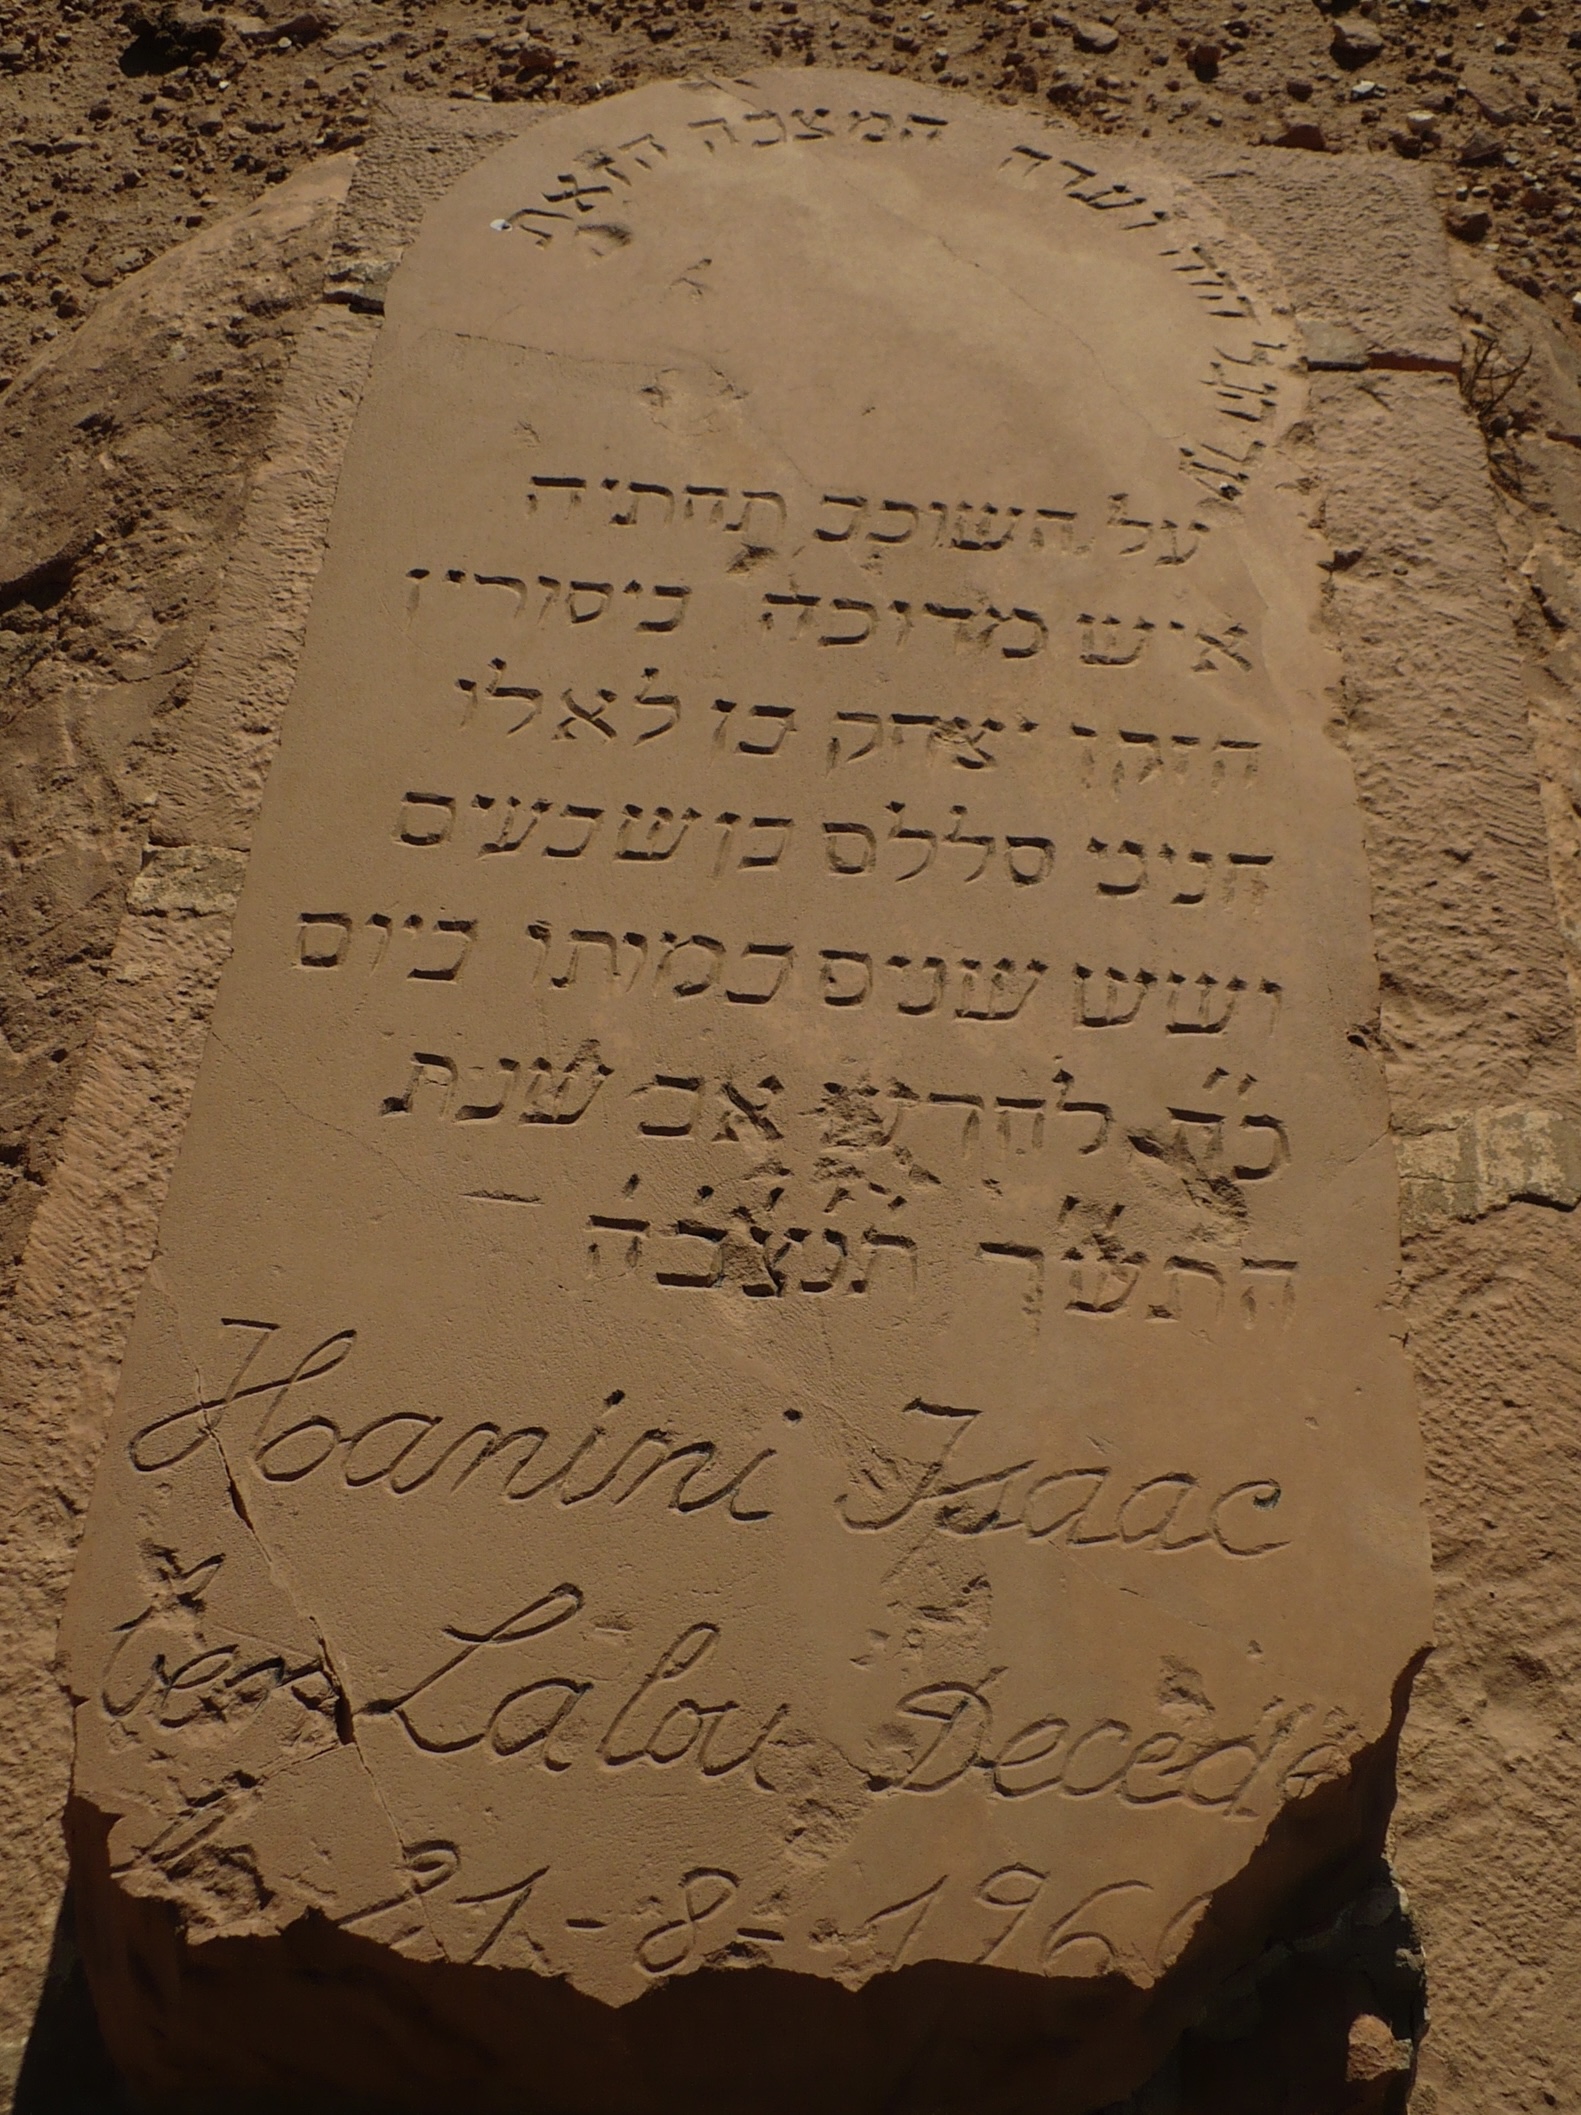 עד הגל הזה ועדה המצבה הזאת
על השוכב תחתיה
איש מדוכה ביסורין
הזקן יצחק בן לאלו
חניני סללם בן שבעים
ושש שנים במותו ביום
כ״ח לחדש אב שנת
התש״ך תנצב״ה
Hanini Isaac
ben Lalou Decedé
le 21-8-1960